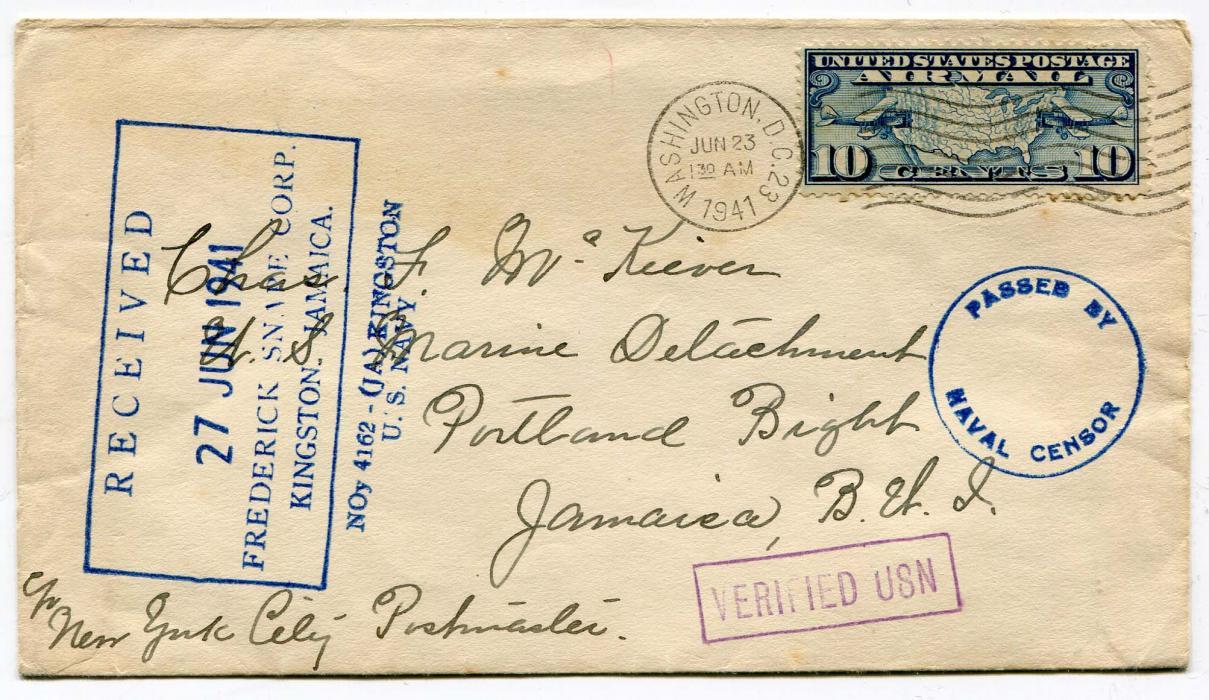 UNITED STATES POSTAGE
AIR MAIL
10 CENTS 10
WASHINGTON, D.C. 23
JUN 23
1 30 AM
1941
RECEIVED
27 JUN 1941
FREDERICK SNARE CORP.
KINGSTON, JAMAICA.
NOy 4162 - (JA) KINGSTON
U.S. NAVY
Chas. F. McKeever
U. S. Marine Detachment
Portland Bight
Jamaica, B. W. I.
PASSED BY
NAVAL CENSOR
VERIFIED USN
c/o
New York City Postmaster.